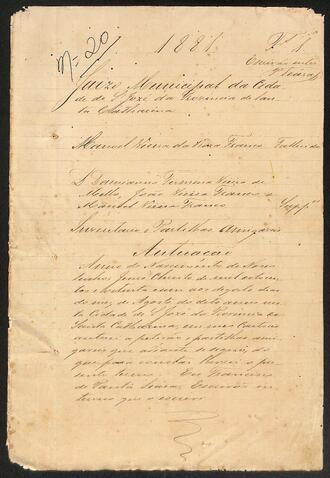 Nº 20
1881
Fl 1
Escrivão
Juizo Municipal da Cida
de de S. José da Provincia de San
ta Catharina
Manoel Vieira da Veiga Franco Fallecido
D.
Mello, João Vieira Franco e
Manoel Vieira Franco Supp
Inventario e Partilhas amigaveis
Autuação
Anno do Nascimento de Nosso
Senhor Jesus Christo de mil oitocen
tos e oitenta e um aos
do mez de Agosto do dito anno nes
ta Cidade de S. José da Provincia de
Santa Catharina, em meu Cartorio
autoei a petição e partilhas ami
gaveis que adiante se seguem, do
que para constar lavrei o pre
sente termo. Eu Francisco
Escrivão
que o escrevi